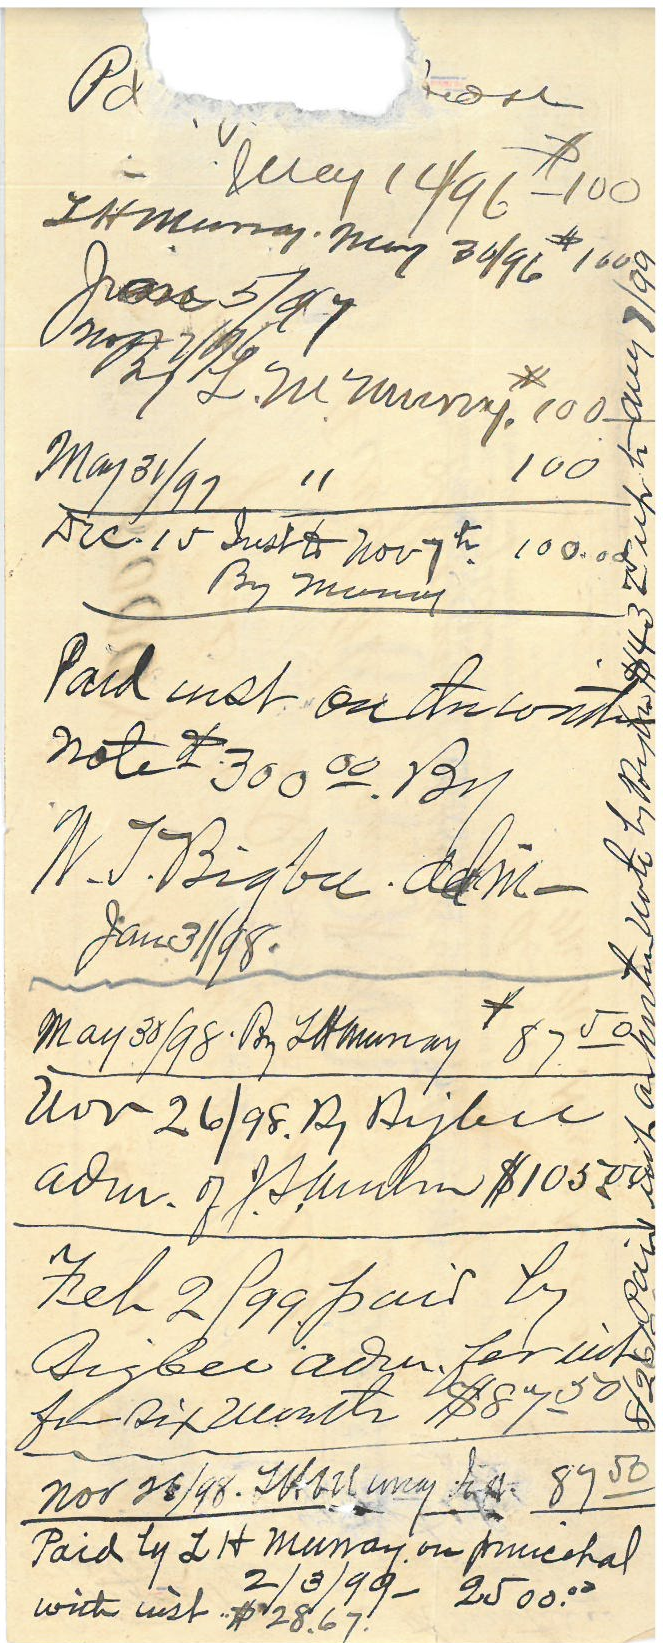 Pd
May 14/96 $100
L H Murray. May 30/96 $100
June 5/97
Nov 7/96
By L. M. Murray. $100
May 31/97 " 100
Dec. 15 Inst to Nov 7th. 100.00
By Murray
Paid inst on the within
note $300.00. By
W. T. Bigbee. Adm-
Jan 31/98.
May 30/98. By L H Murray $87.50
Nov 26/98. By Bigbee
adm. of J. S. $105.00
Feb 2/99 paid by
Bigbee adm. for int
for six months $87.50
Nov 26/98. L H Murray 87.50
Paid by L H Murray on principal
2/3/99 - 2500.00
with inst $28.67.
8/26/ Paid int on within note by up to Aug 8/99